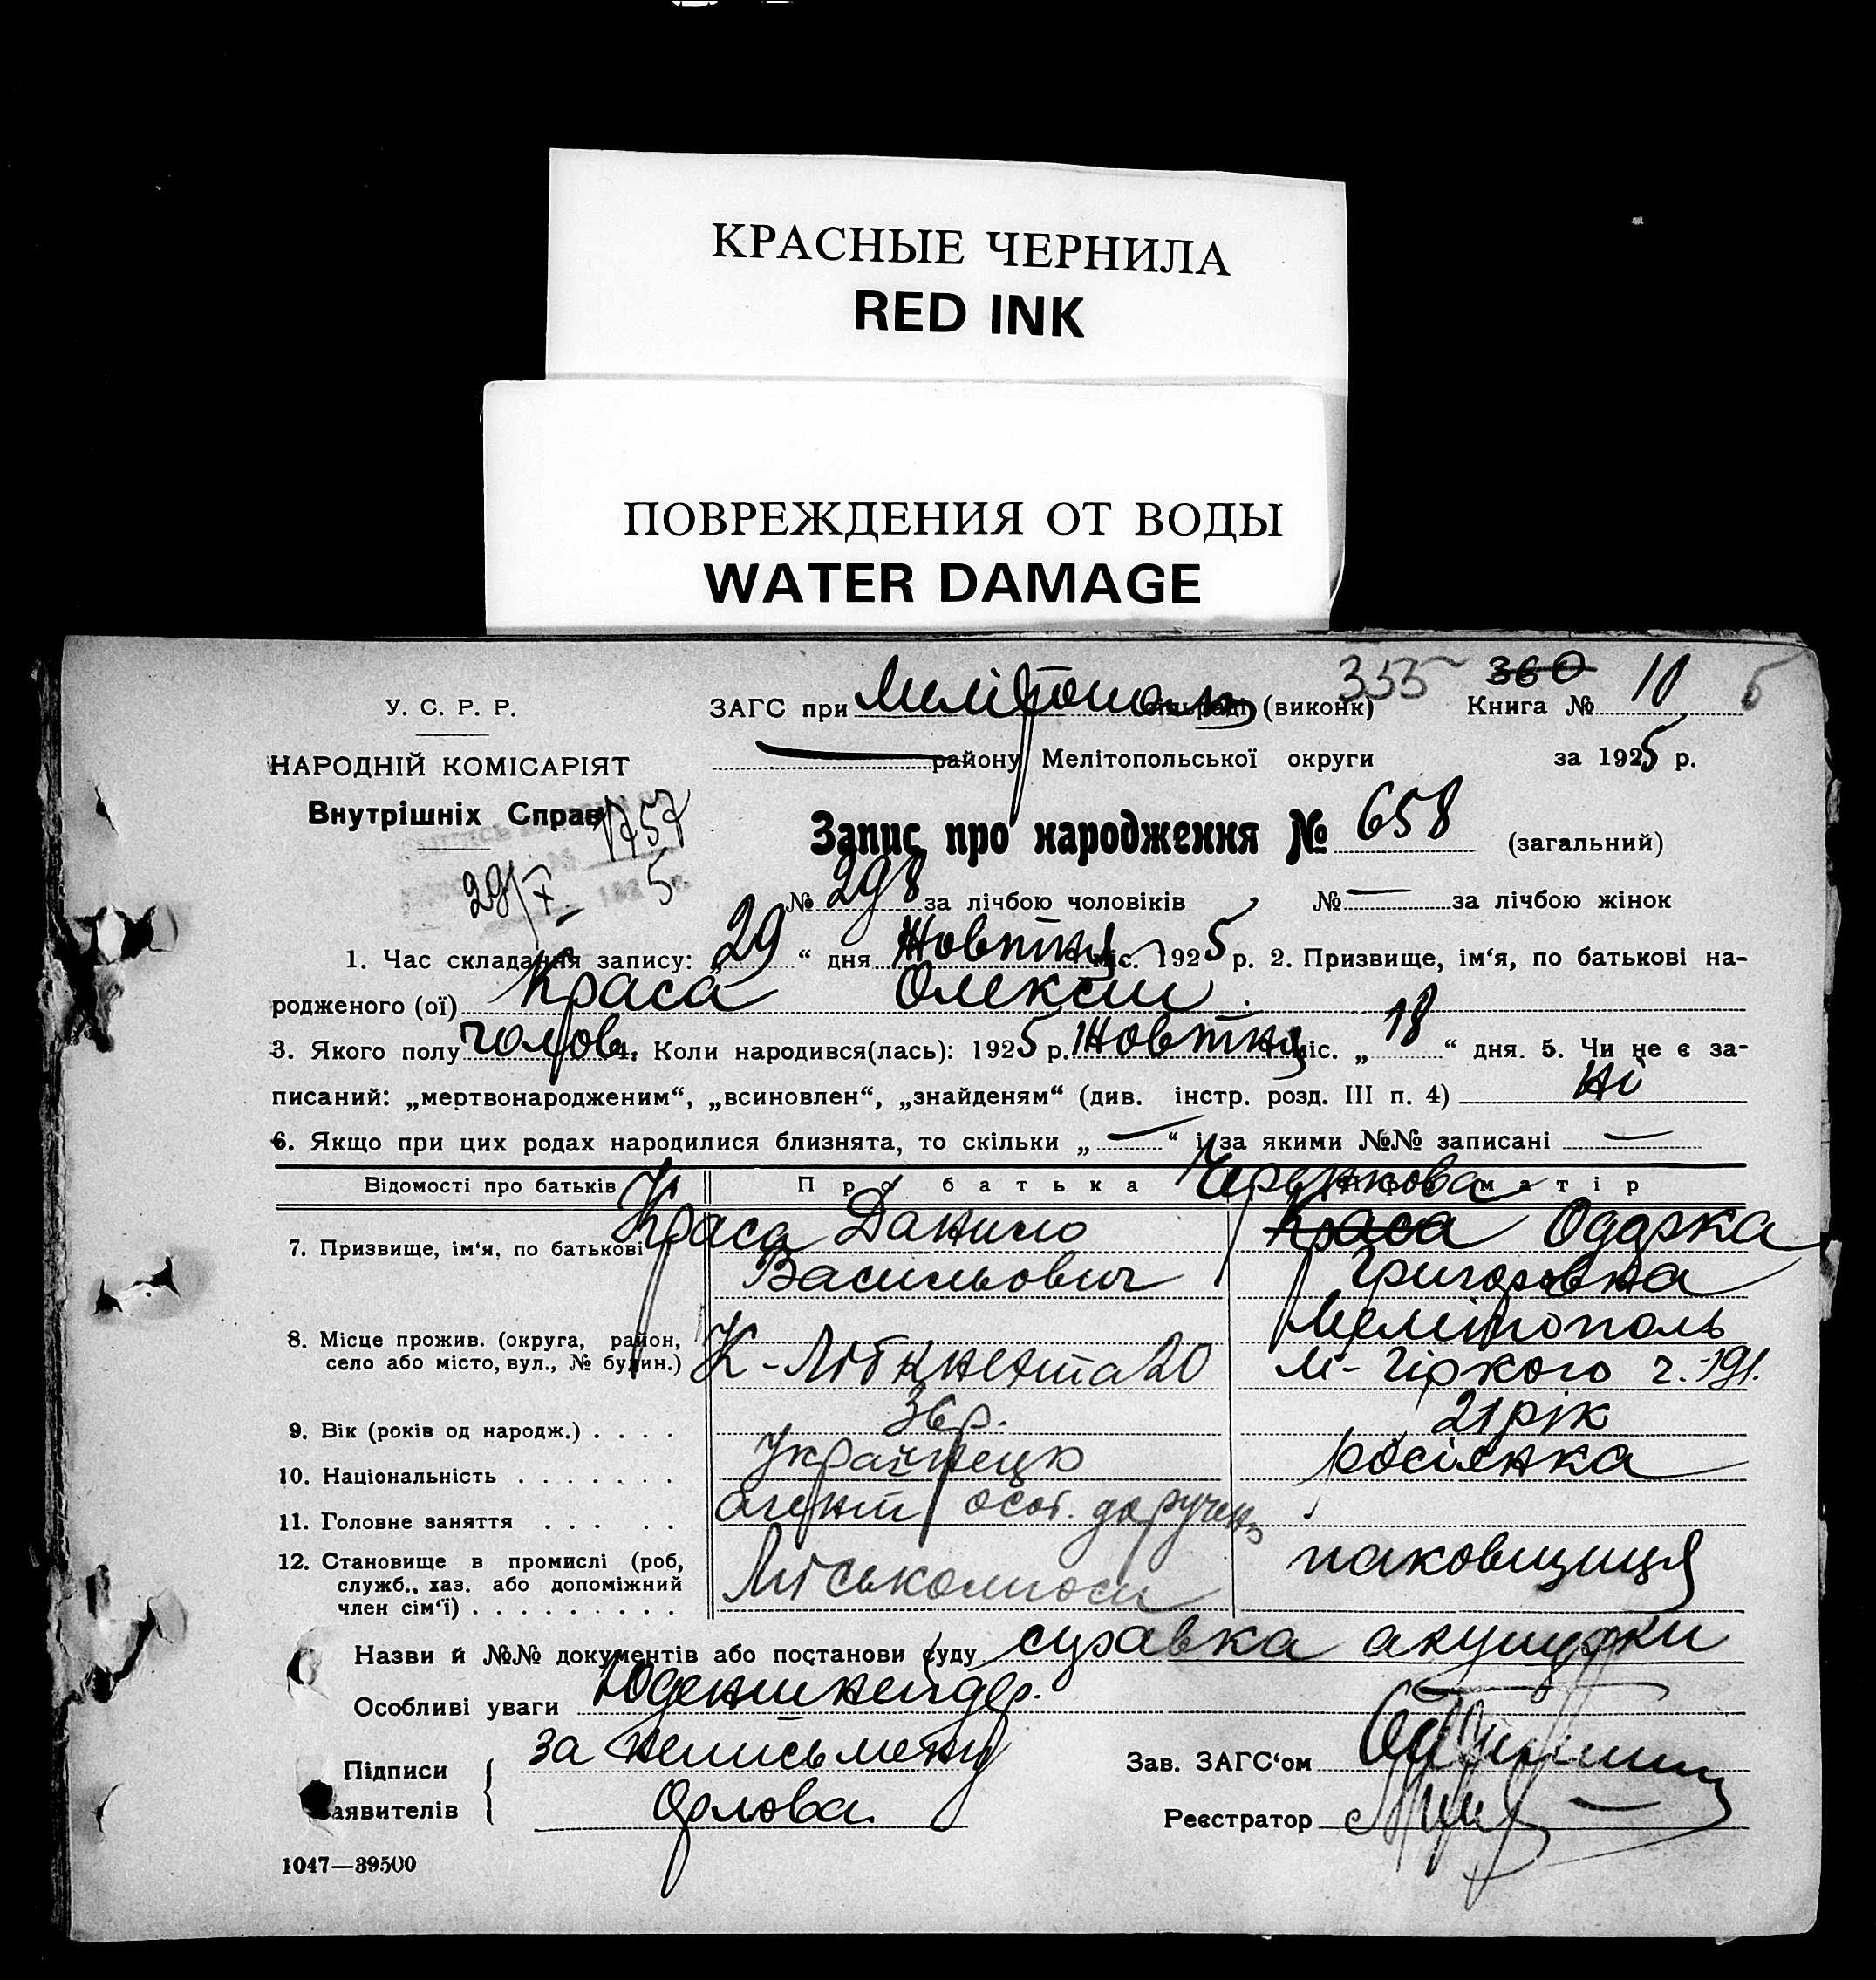 КРАСНЫЕ ЧЕРНИЛА
RED INK
ПОВРЕЖДЕНИЯ ОТ ВОДЫ
WATER DAMAGE
355 360 10 5
У. С. Р. Р. ЗАГС при (виконк) Книга №
району Мелітопольської округи за 1925 р.
НАРОДНІЙ КОМІСАРІЯТ
Внутрішніх Справ 1757
Запис про народження № 658 (загальний)
29/X 5
№ 298 за лічбою чоловіків № — за лічбою жінок
1. Час складання запису: „29“ дня Жовтня міс. 1925 р. 2. Призвище, ім‘я, по батькові на-
родженого (ої) Краса Олексій
3. Якого полу чолов. 4. Коли народився(лась): 1925 р. Жовтня міс. „18“ дня. 5. Чи не є за-
писаний: „мертвонародженим“, „всиновлен“, „знайденям“ (див. інстр. розд. III п. 4) ні
6. Якщо при цих родах народилися близнята, то скільки „—“ і за якими №№ записані —
Відомості про батьків Про батька матір
7. Призвище, ім‘я, по батькові Краса Данило Краса Одарка
Васильович Григоровна
Мелітополь
8. Місце прожив. (округа, район,
село або місто, вул., № будин.) К-Лібкнехта 20 М-Гіркого ч. 191.
9. Вік (років од народж.) . . . . 36 р. 21 рік
10. Національність . . . . . . . Українець росіянка
11. Головне заняття . . . . . агент особ. доручень
12. Становище в промислі (роб,
служб., хаз. або допоміжний
член сім‘ї) . . . . . . . . . паковщиця
Назви й №№ документів або постанови суду справка акушурки
Особливі уваги
Підписи за неписьмену Зав. ЗАГС‘ом
заявителів Орлова Реєстратор
1047—39500